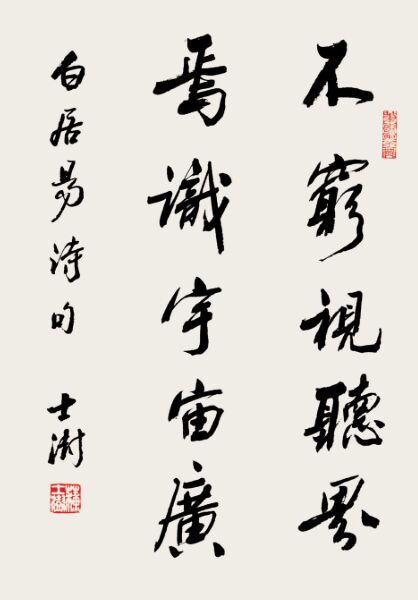 不窮視聽界
焉識宇宙廣
白居易詩句
士澍